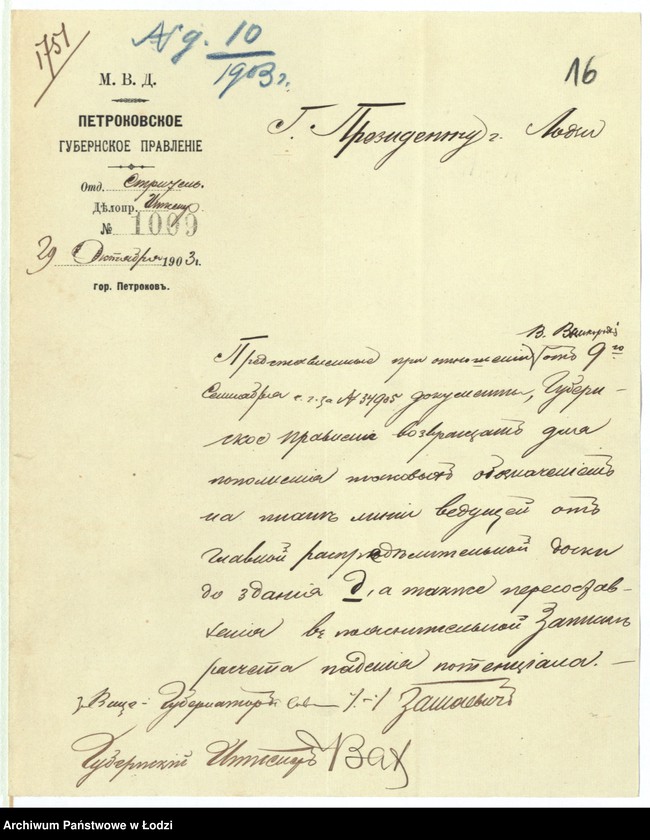 1751
№ g. 10/1903 г.
16
М. В. Д.
ПЕТРОКОВСКОЕ
ГУБЕРНСКОЕ ПРАВЛЕНІЕ
Отд. Строитель.
Дѣлопр.
№ 1099
29 Октября 1903 г.
гор. Петроковъ.
Г. Президенту г. Лодзи
В.
Представленные при отношеніи отъ 9го
Сентября с. г. за № 34905 документы, Губерн-
ское правленіе возвращаетъ для
пополненія таковыхъ обозначеніемъ
на планѣ линіи ведущей отъ
главной распредѣлительной доски
до зданія D, а также пересостав-
ленія въ пояснительной Запискѣ
расчета паденія потенціала. —
Вице-Губернатор
Губернскій Инженеръ
Archiwum Państwowe w Łodzi